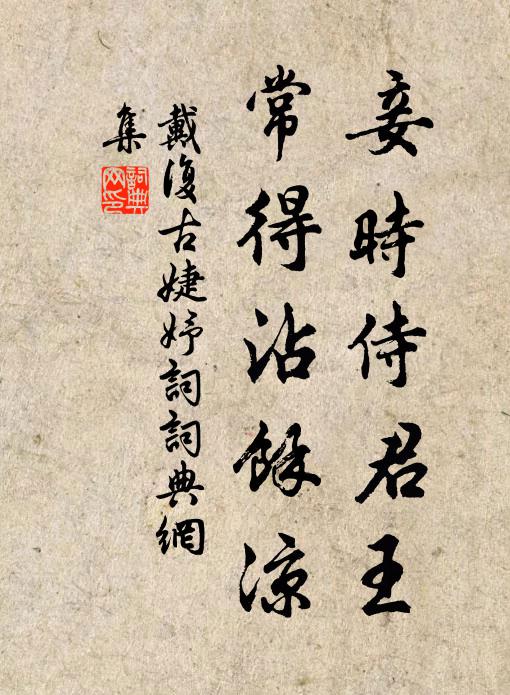 妾時侍君王
常得沾餘涼
戴復古婕妤詞詞典網
集
詞典
网印